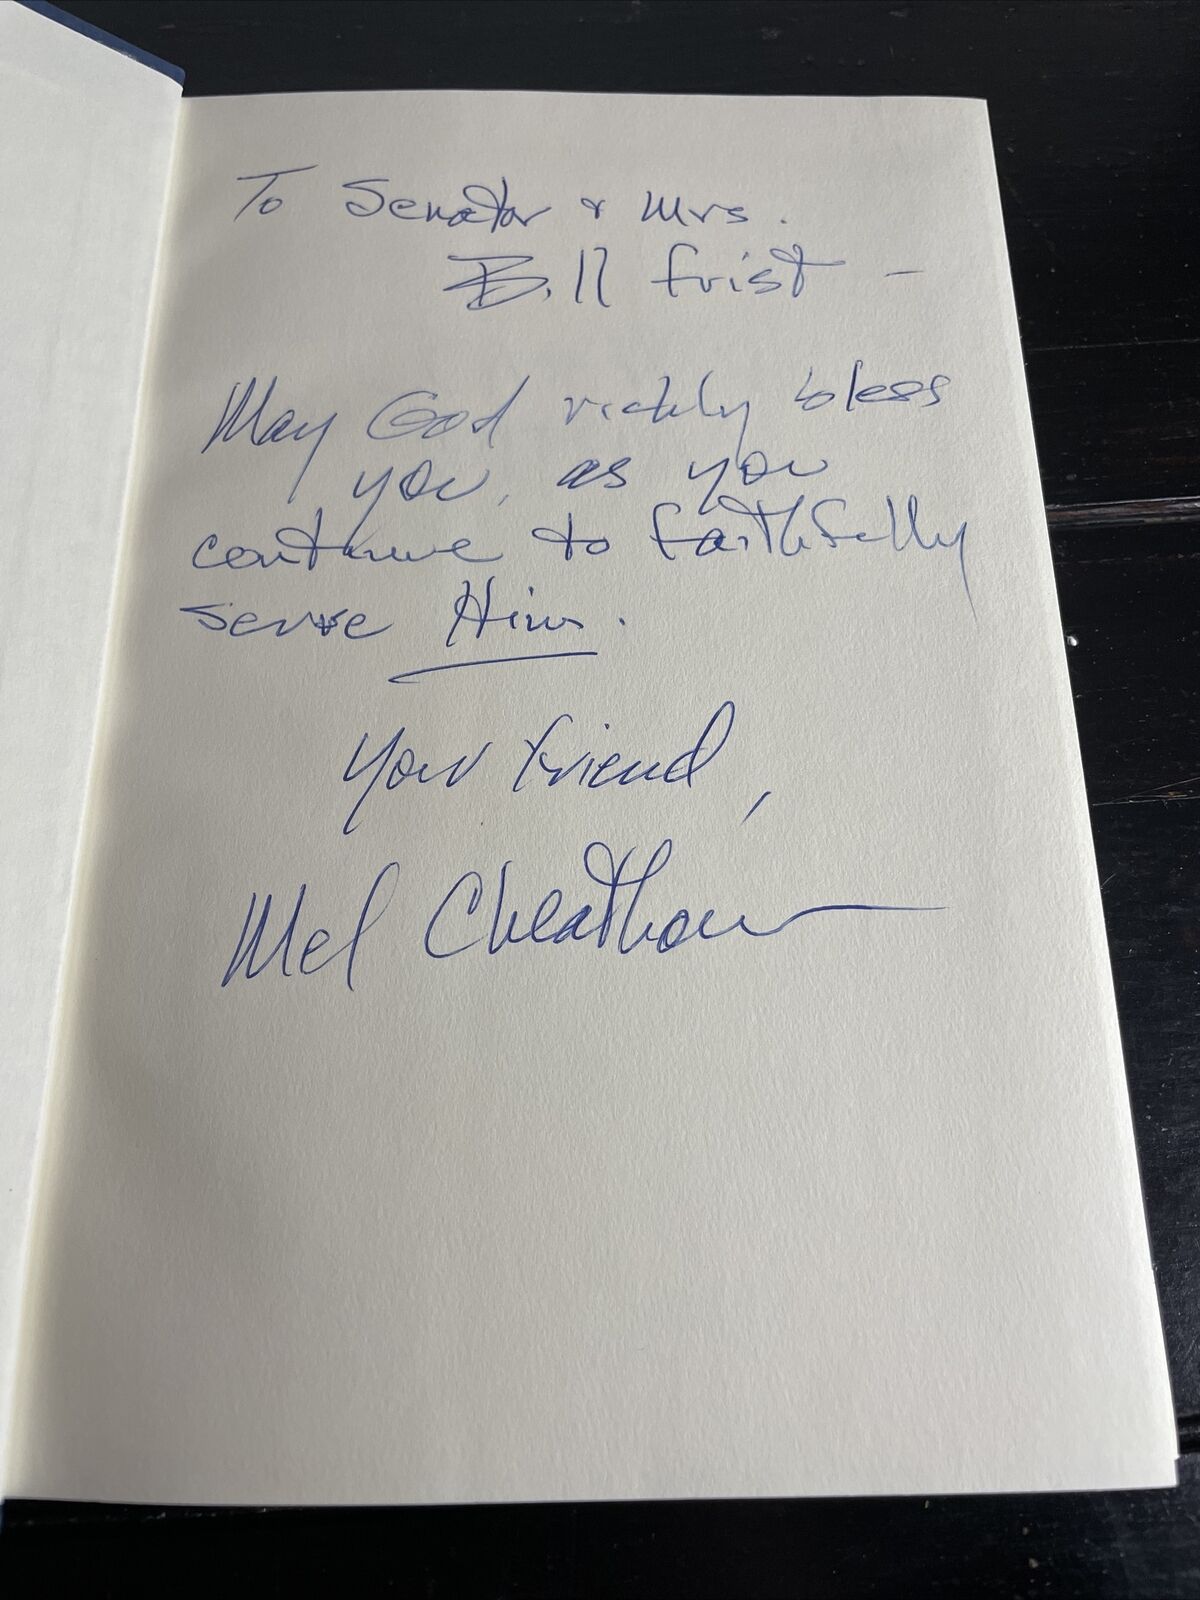 To Senator & Mrs.
Bill Frist -
May God richly bless
you, as you
continue to faithfully
serve Him.
Your friend,
Mel Cheatham